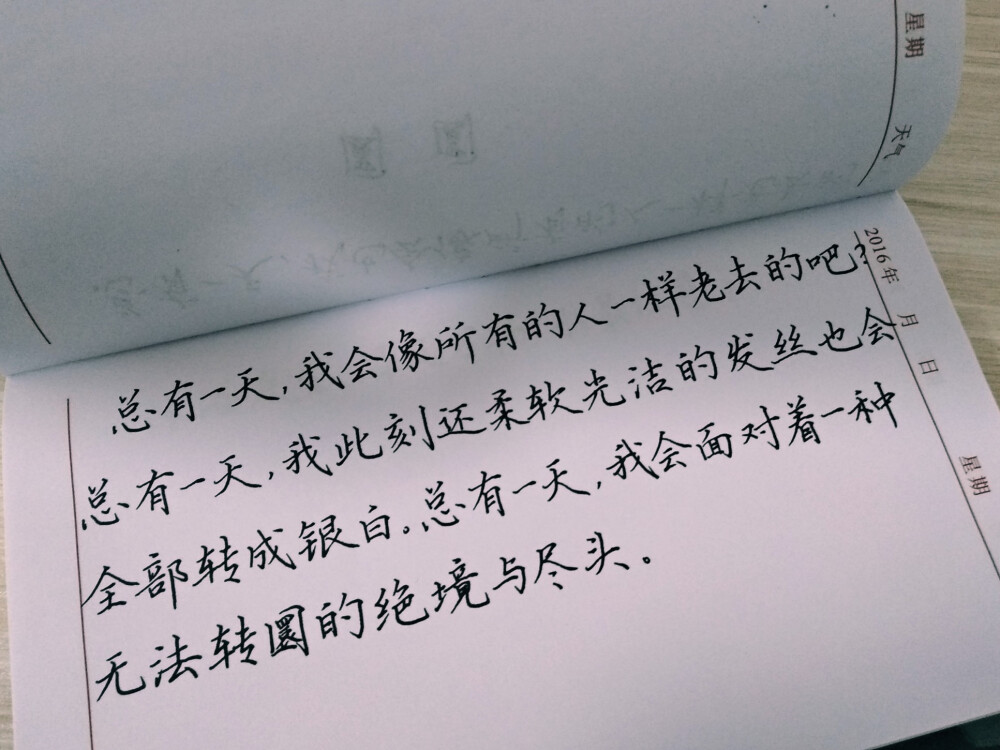 星期
天气
2016年 月 日
星期
总有一天,我会像所有的人一样老去的吧?
总有一天,我此刻还柔软光洁的发丝也会
全部转成银白。总有一天,我会面对着一种
无法转圜的绝境与尽头。